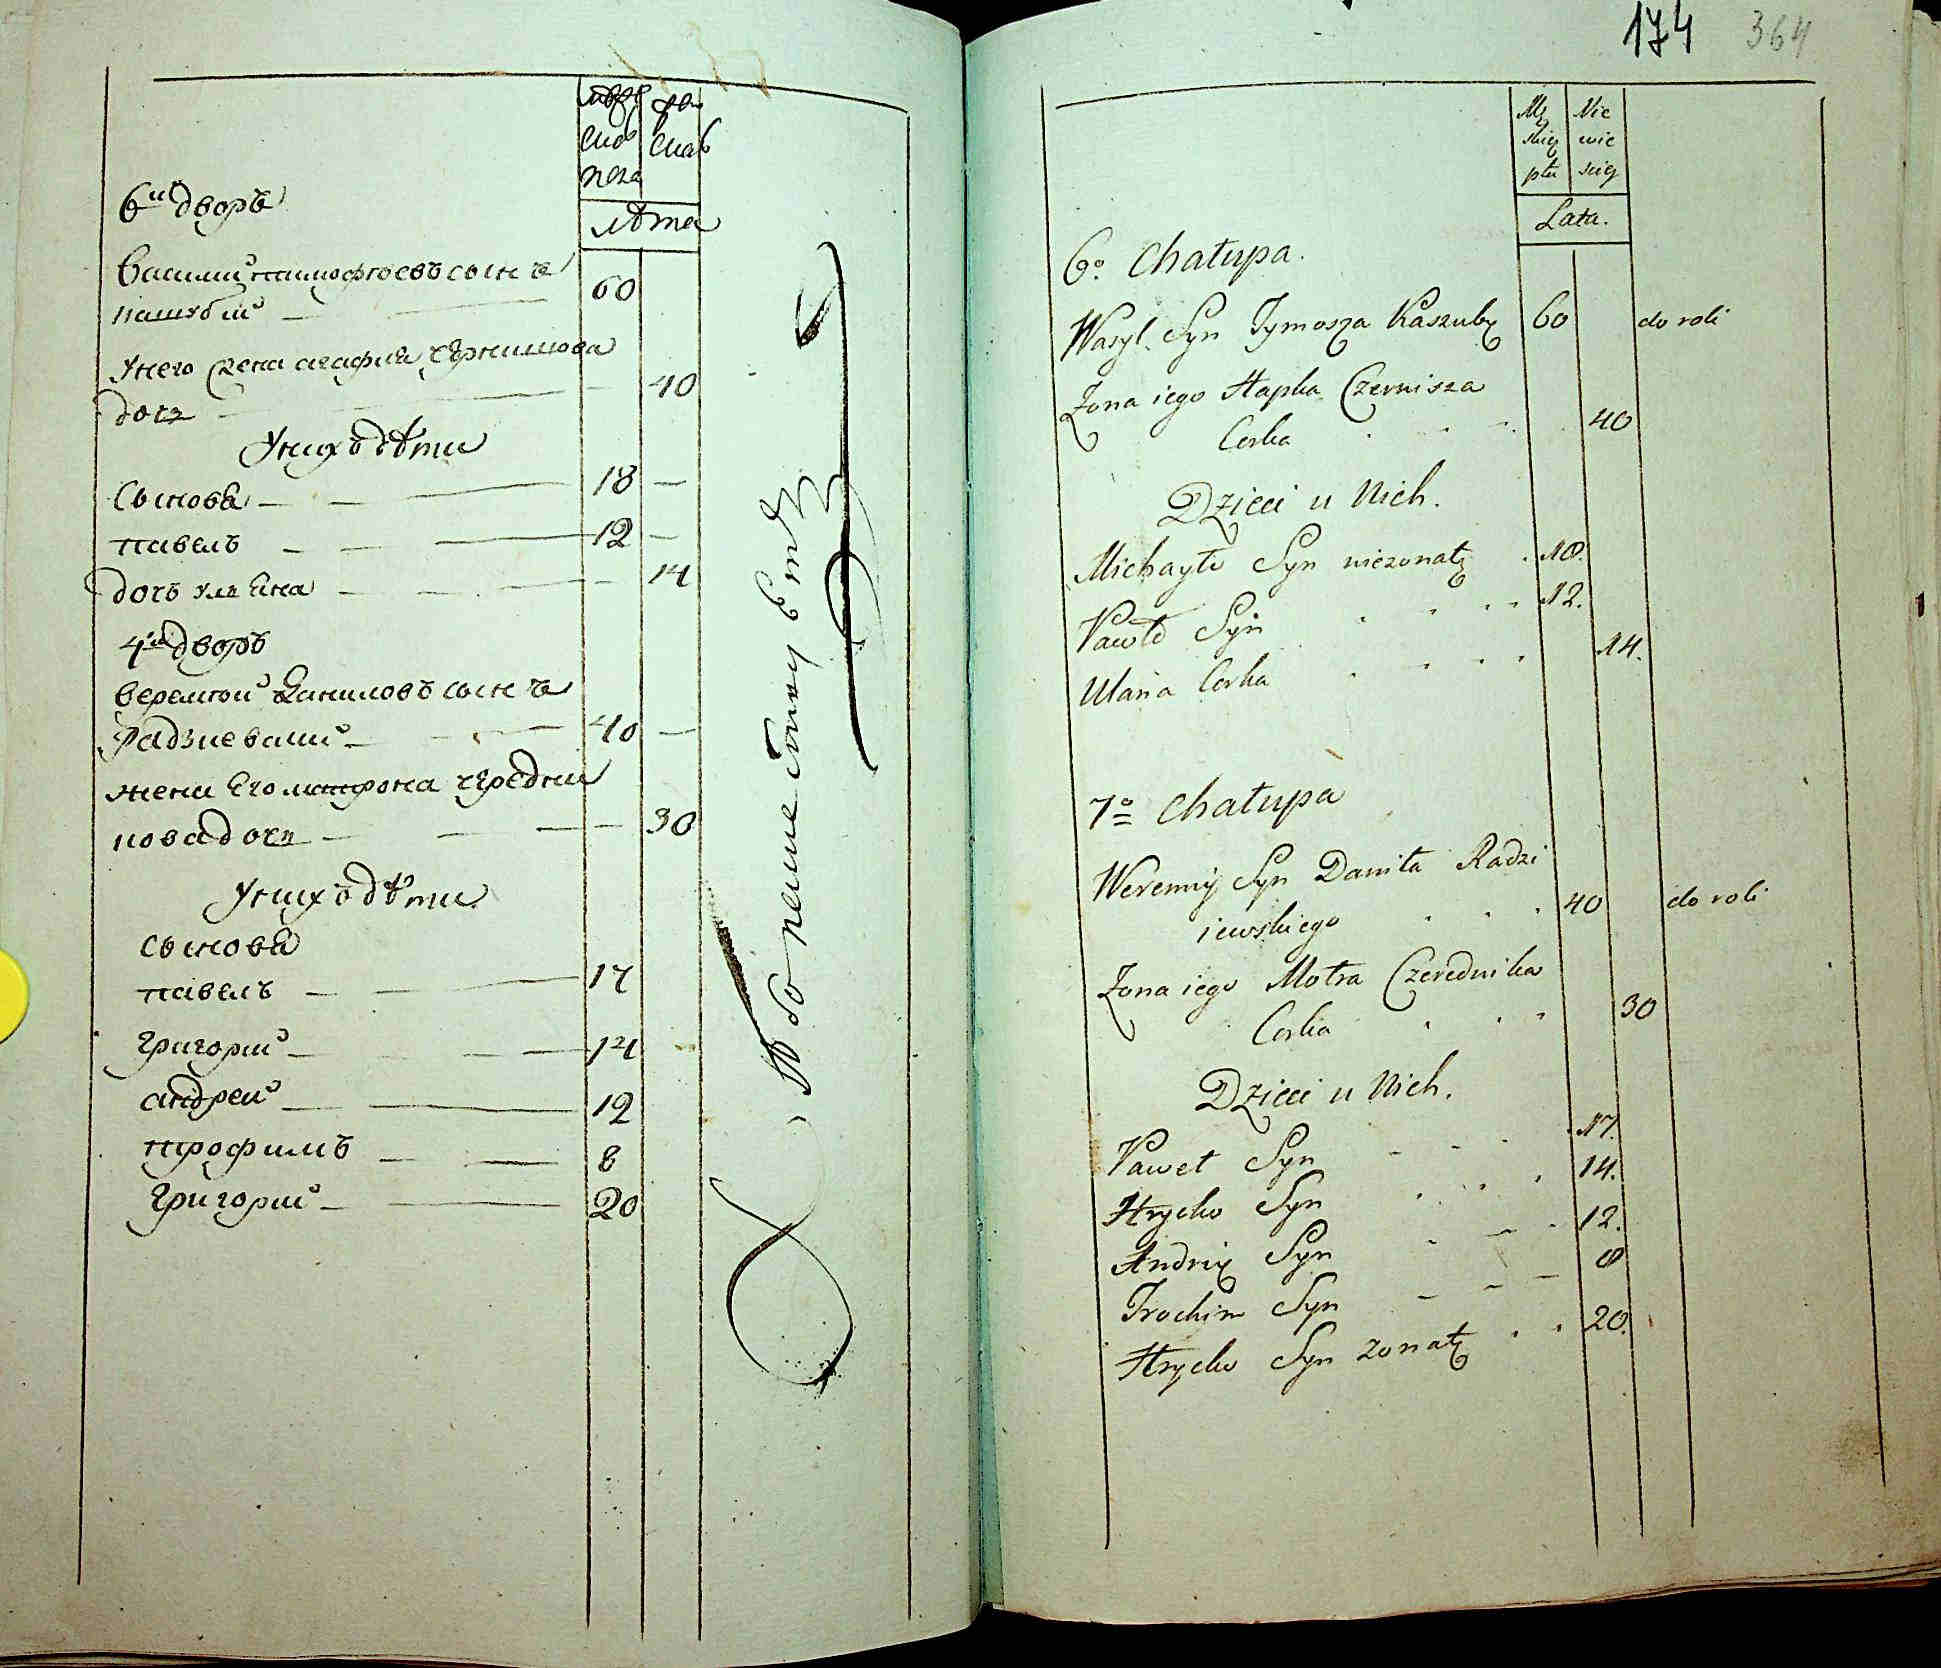 6й дворъ
лѣта
василий тимофѣевъ сынъ
кашубий 60
у него жена агафия чернишова
дочъ 40
У нихъ дѣти
Сынове 18
павелъ 12
дочъ улиана 14
7й дворъ
веремий Даниловъ сынъ
Радзиевский 40
жена его матрона чередни
кова дочъ 30
У нихъ дѣти
Сынове
павелъ 17
григорий 14
андрей 12
трофимъ 8
григорий 20
174 364
Mę Nie
skiej wie
płci skiej
Lata.
6o Chałupa.
Wasyl Syn Tymosza Kaszuby 60 do roli
Żona iego Hapka Czernisza
Corka 40
Dzieci u Nich.
Michayło Syn nieżonaty 18.
Pawło Syn 12.
Ulana Corka 14.
7o Chałupa
Weremiy Syn Daniła Radzi
iewskiego 40 do roli
Żona iego Motra Czerednika
Corka 30
Dzieci u Nich.
Paweł Syn 17.
Hryćko Syn 14.
Andriy Syn 12.
Trochim Syn 8
Hryćko Syn żonaty 20.